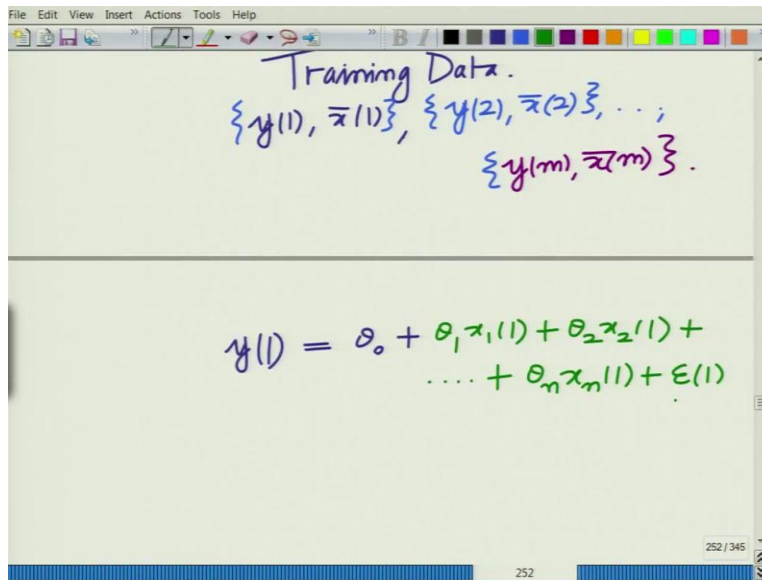 File Edit View Insert Actions Tools Help
B I
Training Data.
{y(1), x̅(1)}, {y(2), x̅(2)}, ...,
{y(m), x̅(m)}.
y(1) = θ₀ + θ₁x₁(1) + θ₂x₂(1) +
.... + θₙxₙ(1) + ε(1)
252 / 345
252